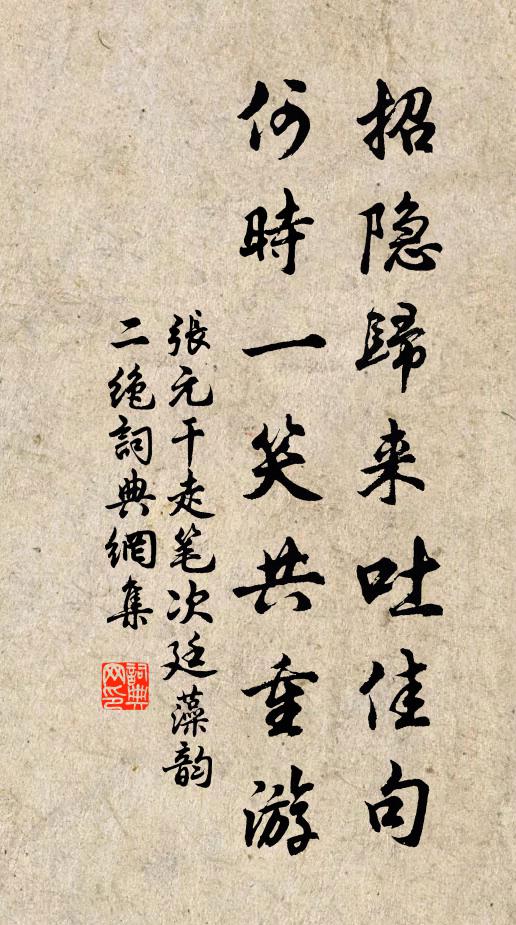 招隐歸来吐佳句
何時一笑共重游
張元干走笔次廷藻韵
二绝詞典網集
詞典网印